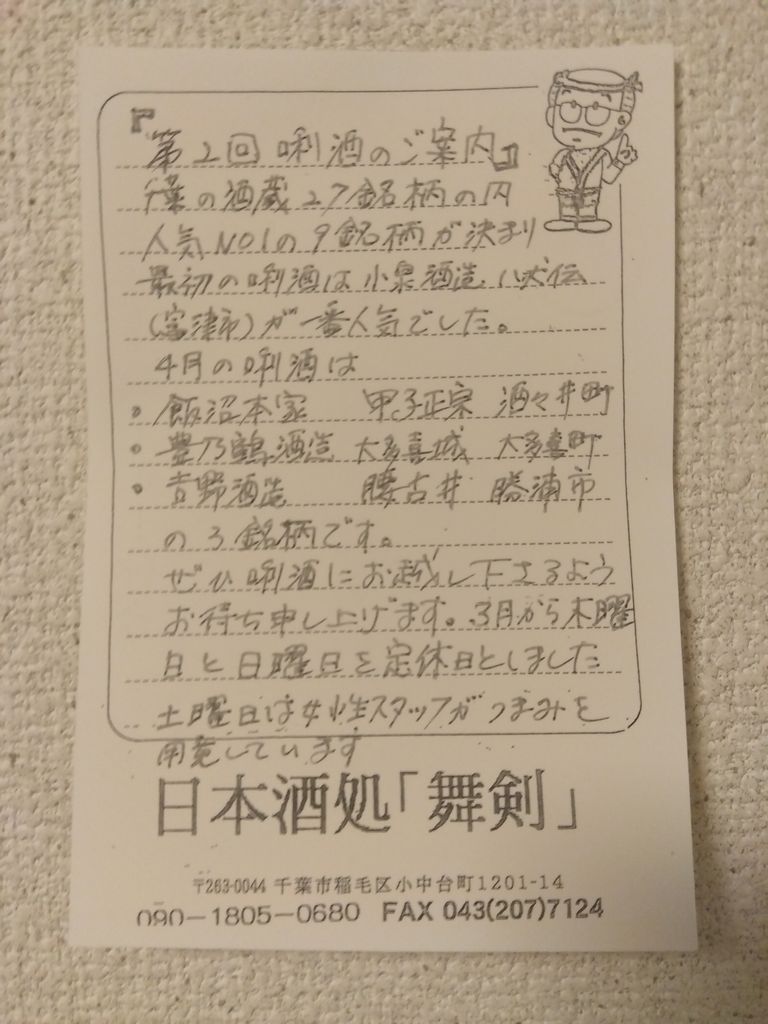 『第2回 唎酒のご案内』
千葉の酒蔵27銘柄の内
人気NO1の9銘柄が決まり
最初の唎酒は小泉酒造 八犬伝
(富津市)が一番人気でした。
4月の唎酒は
・飯沼本家 甲子正宗 酒々井町
・豊乃鶴酒造 大多喜城 大多喜町
・吉野酒造 腰古井 勝浦市
の3銘柄です。
ぜひ唎酒にお越し下さるよう
お待ち申し上げます。3月から木曜
日と日曜日を定休日としました
土曜日は女性スタッフがつまみを
用意しています
日本酒処「舞剣」
〒263-0044 千葉市稲毛区小中台町1201-14
090-1805-0680 FAX 043(207)7124